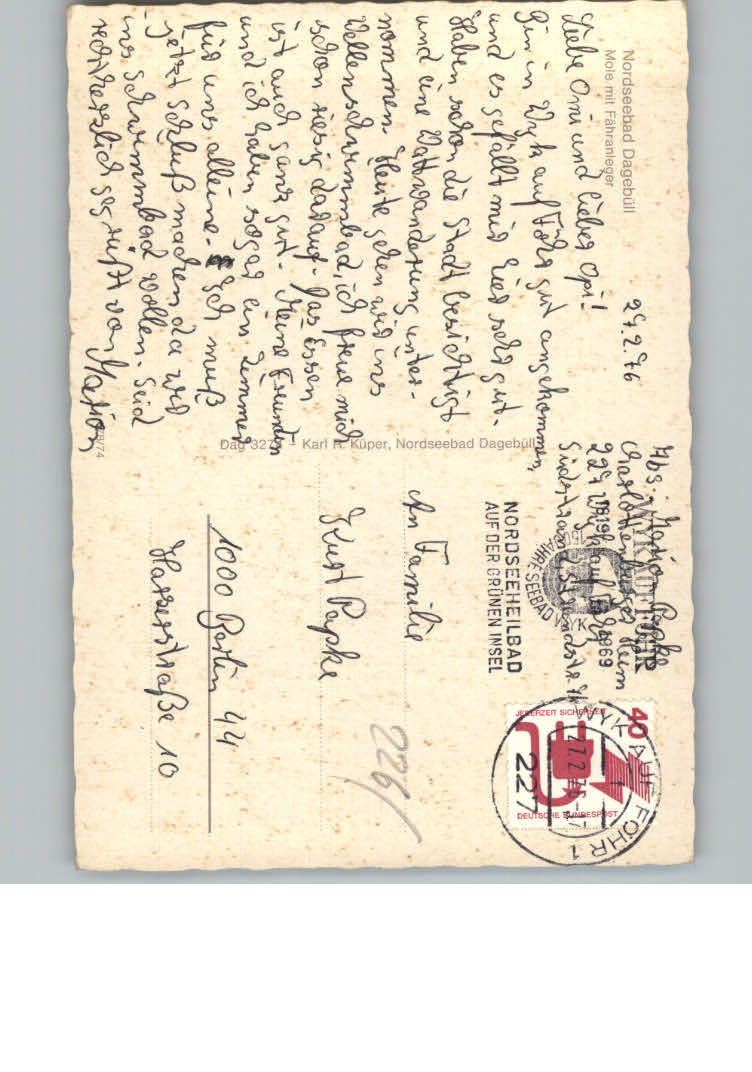 Nordseebad Dagebüll
Mole mit Fähranleger
27.2.76
Liebe Omi und lieber Opi!
Bin in Wyk auf Föhr gut angekommen,
und es gefällt mir hier sehr gut.
Haben schon die Stadt besichtigt
und eine Wattwanderung unter-
nommen. Heute gehen wir ins
Wellenschwimmbad, ich freue mich
schon riesig darauf. Das Essen
ist auch ganz gut. Meine Freundin
und ich haben sogar ein Zimmer
für uns alleine. Ich muß
jetzt schluß machen da wir
ins schwimmbad wollen. Seid
recht herzlich gegrüßt von Marion
78/74
Dag 327 – Karl R. Küper, Nordseebad Dagebüll
Abs.: Marion Papke
Charlottenburger Heim
227 Wyk auf Föhr
Südstrand
WYK AUF FÖHR
1819 1969
150 JAHRE SEEBAD WYK
NORDSEEHEILBAD
AUF DER GRÜNEN INSEL
40
JEDERZEIT SICHERHEIT
DEUTSCHE BUNDESPOST
WYK AUF FÖHR 1
27.2.76
227
An Familie
Kurt Papke
1000 Berlin 44
Harzerstraße 10
226/